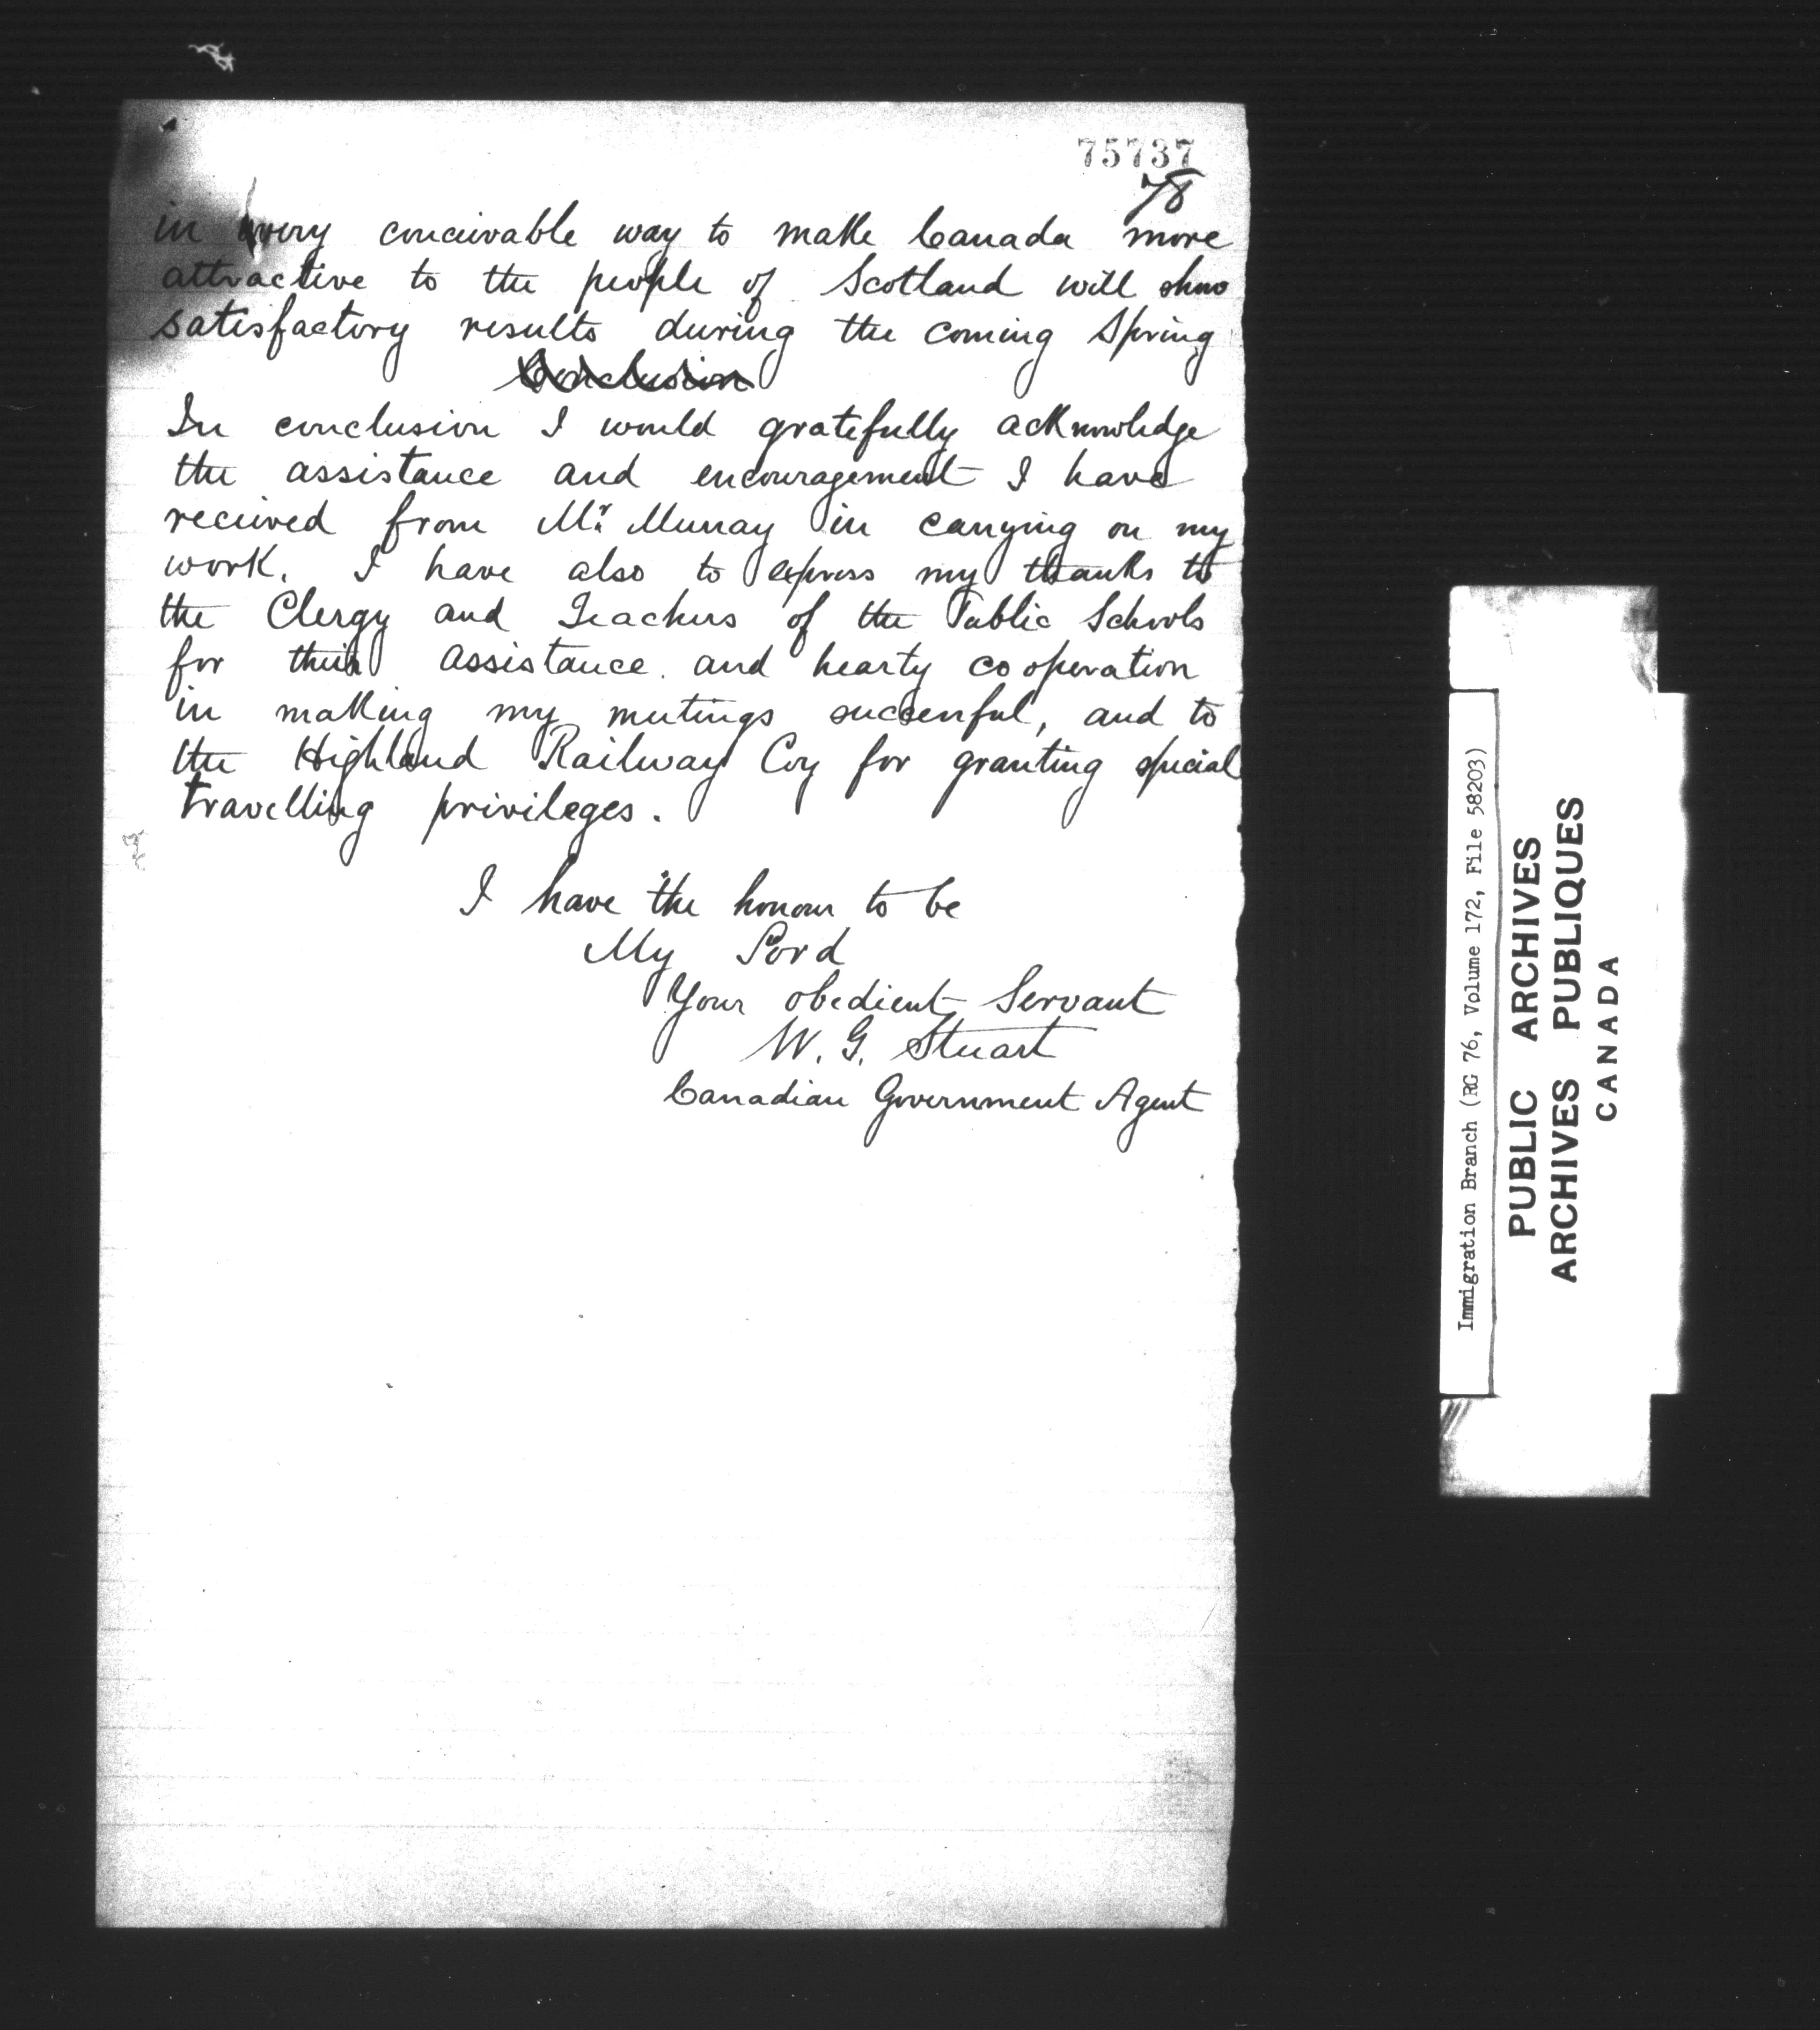 75737
78
in every conceivable way to make Canada more
attractive to the people of Scotland will show
satisfactory results during the coming Spring
Conclusion
In conclusion I would gratefully acknowledge
the assistance and encouragement I have
received from Mr. Murray in carrying on my
work. I have also to express my thanks to
the Clergy and Teachers of the Public Schools
for their assistance and hearty cooperation
in making my meetings successful, and to
the Highland Railway Coy for granting special
travelling privileges.
I have the honour to be
My Lord
Your obedient Servant
W. G. Stuart
Canadian Government Agent
Immigration Branch (RG 76, Volume 172, File 58203)
PUBLIC ARCHIVES
ARCHIVES PUBLIQUES
CANADA